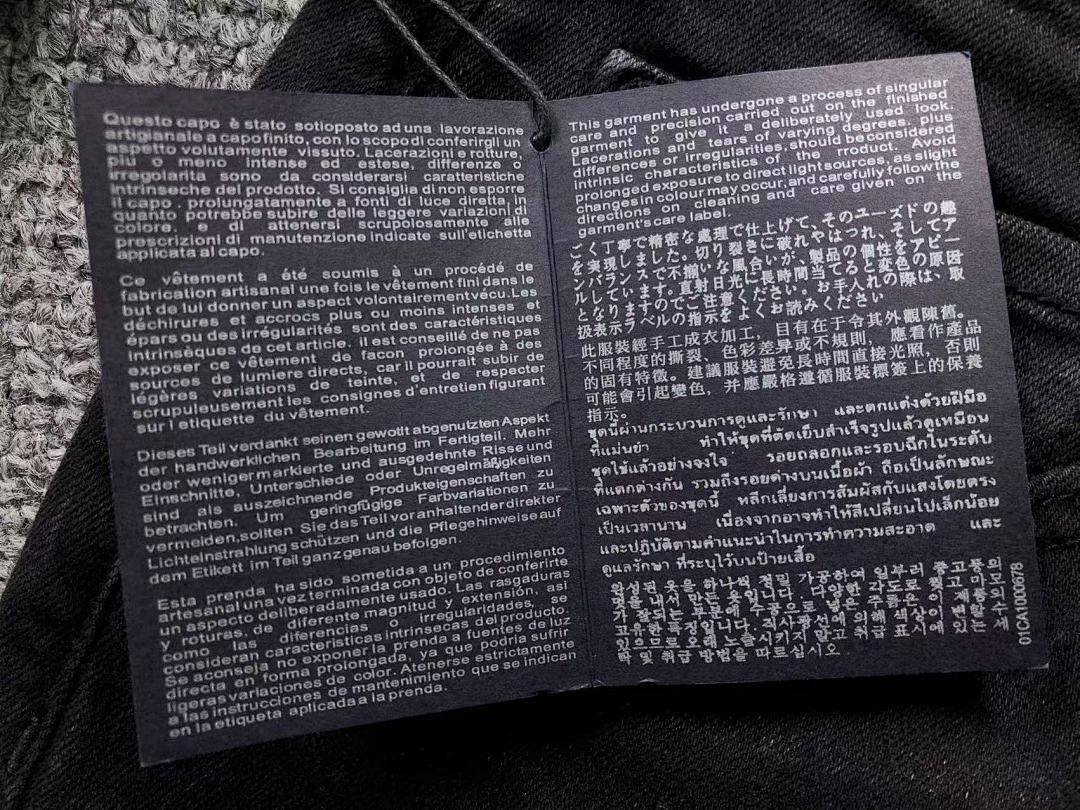 Questo capo è stato sotioposto ad una lavorazione
artigianale a capo finito, con lo scopo di conferirgli un
aspetto volutamente vissuto. Lacerazioni e rotture,
piu o meno intense ed estese, differenze o
irregolarita sono da considerarsi caratteristiche
intrinseche del prodotto. Si consiglia di non esporre
il capo . prolungatamente a fonti di luce diretta, in
quanto potrebbe subire delle leggere variazioni di
colore. e di attenersi scrupolosamente alle
prescrizioni di manutenzione indicate sull'etichetta
applicata al capo.
Ce vêtement a été soumis à un procédé de
fabrication artisanal une fois le vêtement fini dans le
but de lui donner un aspect volontairement vécu. Les
déchirures et accrocs plus ou moins intenses et
épars ou des irrégularités sont des caractéristiques
intrinsèques de cet article. il est conseillé de ne pas
exposer ce vêtement de facon prolongée à des
sources de lumiere directs, car il pourrait subir de
légères variations de teinte, et de respecter
scrupuleusement les consignes d'entretien figurant
sur l etiquette du vêtement.
Dieses Teil verdankt seinen gewotlt abgenutzten Aspekt
der handwerklichen Bearbeitung im Fertigteil. Mehr
oder weniger markierte und ausgedehnte Risse und
Einschnitte, Unterschiede oder Unregelmäßigkeiten
sind als auszeichnende Produkteigenschaften zu
betrachten. Um geringfügige Farbvariationen zu
vermeiden, sollten Sie das Teil vor anhaltender direkter
Lichteinstrahlung schützen und die Pflegehinweise auf
dem Etikett im Teil ganz genau befolgen.
Esta prenda ha sido sometida a un procedimiento
artesanal una vez terminada con objeto de conferirte
un aspecto deliberadamente usado. Las rasgaduras
y roturas, de diferente magnitud y extensión, as
como las diferencias o irregularidades, se
consideran características intrínsecas del producto.
Se aconseja no exponer la prenda a fuentes de luz
directa en forma prolongada, ya que podria sufrir
ligeras variaciones de color. Atenerse estrictamente
a las instrucciones de mantenimiento que se indican
en la etiqueta aplicada a la prenda.
This garment has undergone a process of singular
care and precision carried out on the finished
garment to give it a deliberately used look.
Lacerations and tears of varying degrees. plus
differences or irregularities, should be considered
intrinsic characteristics of the product. Avoid
prolonged exposure to direct light sources, as slight
changes in colour may occur, and carefully follow the
directions on cleaning and care given on the
garment's care label.
ごく丁寧で精密な處理で仕上げて、そのユーズドの趣
を実現しました。切り裂きに破れやほつれ、そしてア
ンバランスで不揃いな風合いが、製品の個性をアピー
ルしています。直射日光に長時間当てると変色の原因
となりますのでご注意ください。お手入れの際は、取
扱表示ラベルの指示をよくお読みください
此服裝經手工成衣加工，目有在于令其外觀陳舊。
不同程度的撕裂、色彩差异或不規則，應看作產品
的固有特徵。建議服裝避免長時間直接光照，否則
可能會引起變色，并應嚴格遵循服裝標簽上的保養
指示。
ชุดนี้ผ่านกระบวนการดูและรักษา และตกแต่งด้วยฝีมือ
ที่แม่นยำ ทำให้ชุดที่ตัดเย็บสำเร็จรูปแล้วดูเหมือน
ชุดใช้แล้วอย่างจงใจ รอยถลอกและรอยฉีกในระดับ
ที่แตกต่างกัน รวมถึงรอยด่างบนเนื้อผ้า ถือเป็นลักษณะ
เฉพาะตัวของชุดนี้ หลีกเลี่ยงการสัมผัสกับแสงโดยตรง
เป็นเวลานาน เนื่องจากอาจทำให้สีเปลี่ยนไปเล็กน้อย
และปฏิบัติตามคำแนะนำในการทำความสะอาด และ
ดูแลรักษา ที่ระบุไว้บนป้ายเสื้อ
완성된 옷을 하나씩 정밀 가공하여 일부러 중고품의
멋을 내서 만든 옷입니다. 다양한 각도로 찢고 마모의
가 잘되는 부분에 수공으로 넣은 주름은 이 제품의
고유한 특징입니다. 직사광선에 의해 색상이 변할 수
있으므로 오래 노출시키지 말고 취급 표시에 있는 세
탁 및 취급 방법을 따르십시오
01CA1000678